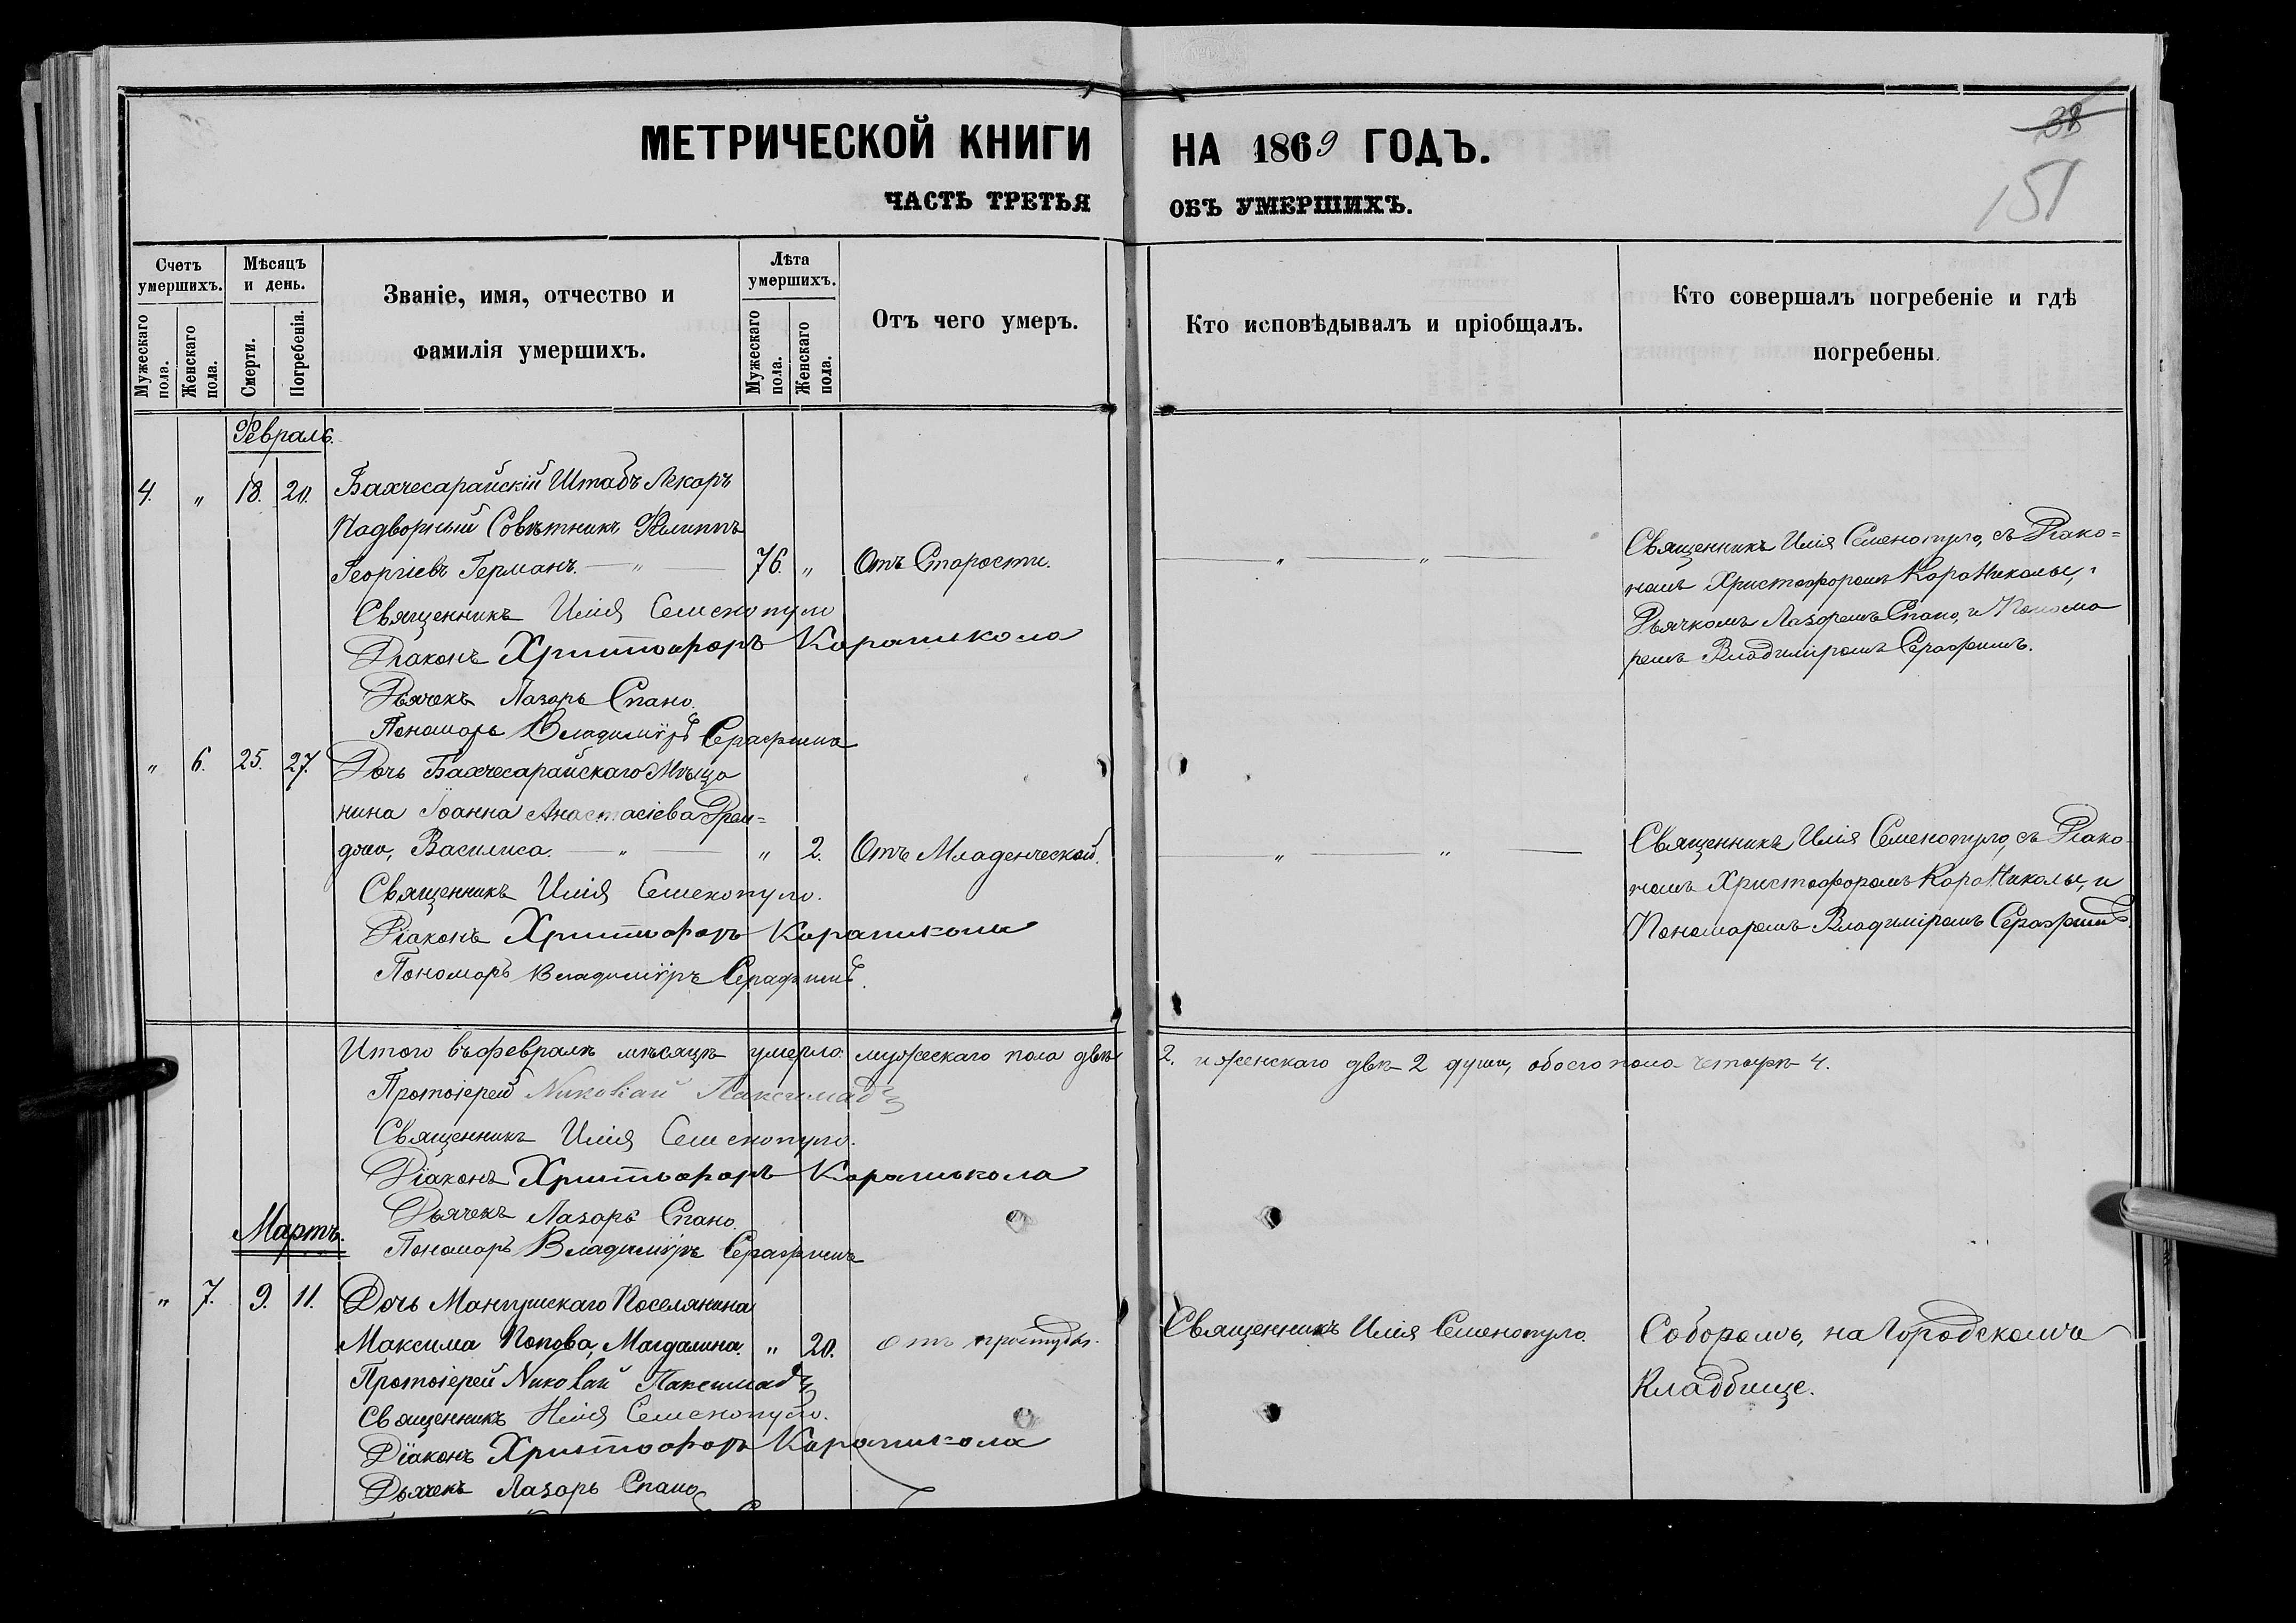 МЕТРИЧЕСКОЙ КНИГИ НА 1869 ГОДЪ.
38
151
ЧАСТЬ ТРЕТЬЯ ОБЪ УМЕРШИХЪ.
Счетъ умершихъ.
Мужескаго пола.
Женскаго пола.
Мѣсяцъ и день.
Смерти.
Погребенія.
Званіе, имя, отчество и
фамилія умершихъ.
Лѣта умершихъ.
Мужескаго пола.
Женскаго пола.
Отъ чего умеръ.
Кто исповѣдывалъ и пріобщалъ.
Кто совершалъ погребеніе и гдѣ
погребены.
Февраль.
4. „ 18. 20. Бахчесарайскій Штабъ Лекаръ
Надворный Совѣтникъ Филиппъ
Георгіевъ Германъ. — „ — 76. „ Отъ Старости. — „ — „ —
Священникъ Илія Семенопуло, съ Діако=
номъ Христофоромъ КараНиколы,
Дьячкомъ Лазаремъ Спано, и Понома
ремъ Владиміромъ Серафимъ.
Священникъ Илія Семенопуло
Діаконъ Христофоръ Караникола
Дьячекъ Лазарь Спано.
Пономарь Владиміръ Серафимъ
„ 6. 25. 27. Дочь Бахчесарайскаго Мѣща
нина Іоанна Анастасіева Фран=
джи, Василиса. — „ — „ 2. Отъ Младенческой. — „ — „ —
Священникъ Илія Семенопуло, съ Діако
номъ Христофоромъ КараНиколы, и
Пономаремъ Владиміромъ Серафимъ.
Священникъ Илія Семенопуло.
Діаконъ Христофоръ Караникола
Пономарь Владиміръ Серафимъ.
Итого въ февралѣ мѣсяцѣ умерло: мужескаго пола двѣ 2. и женскаго двѣ 2 души, обоего пола четыре 4.
Протоіерей Николай Паксимадъ
Священникъ Илія Семенопуло.
Діаконъ Христофоръ Караникола
Дьячекъ Лазарь Спано.
Пономарь Владиміръ Серафимъ
Мартъ.
„ 7. 9. 11. Дочь Мангушскаго Поселянина
Максима Попова, Магдалина. „ 20. отъ простуды. Священникъ Илія Семенопуло. Соборомъ, на Городскомъ
Кладбище.
Протоіерей Николай Паксимадъ
Священникъ Илія Семенопуло.
Діаконъ Христофоръ Караникола
Дьячекъ Лазарь Спано